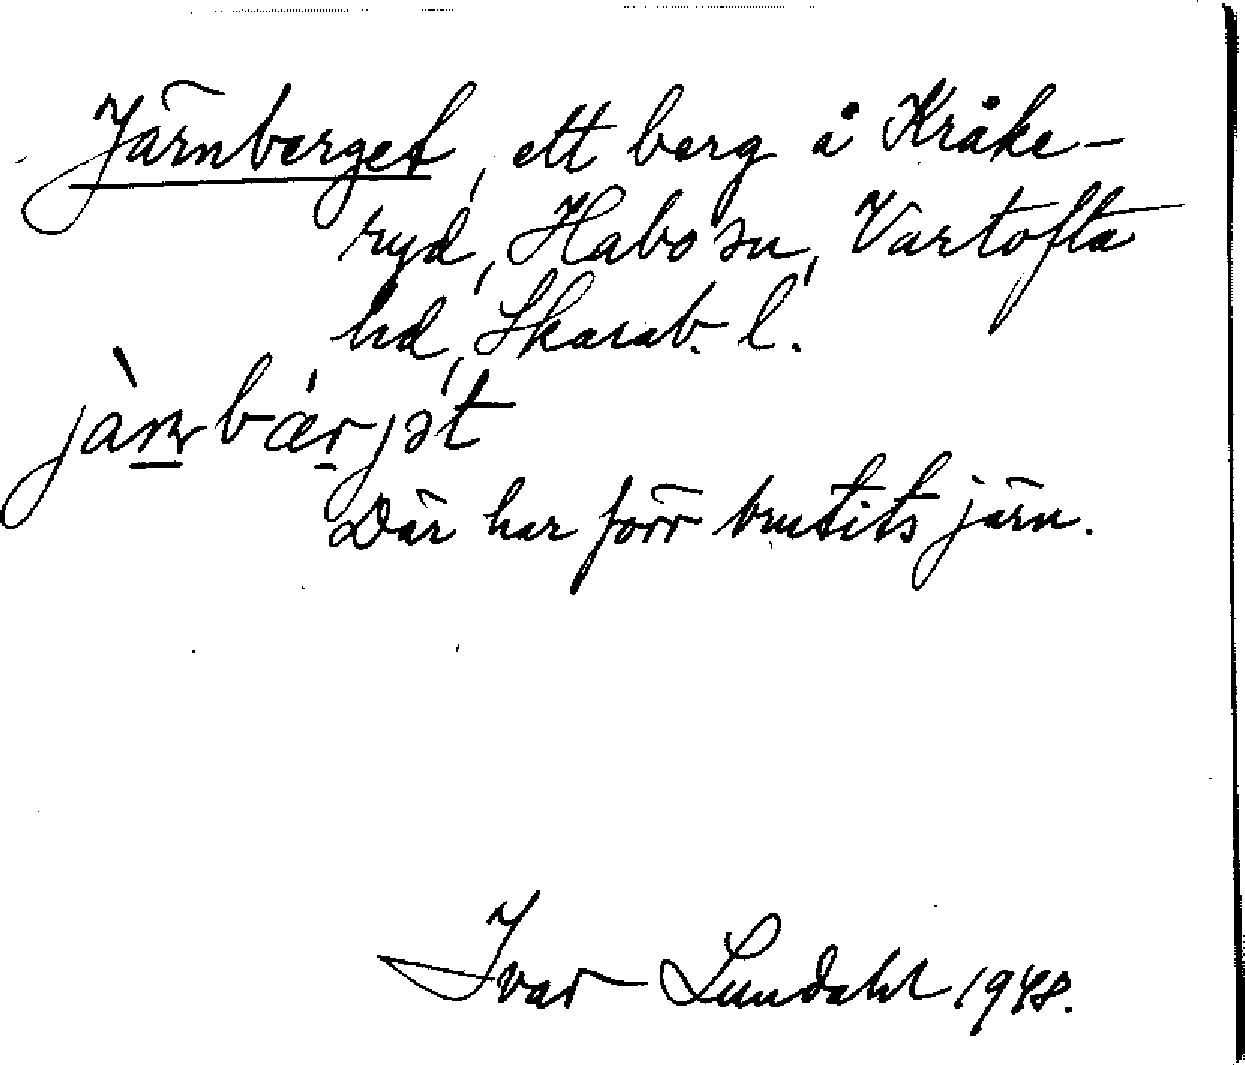 Järnberget, ett berg å Kråke-
ryd, Habo sn, Vartofta
hd, Skarab. l.
jà̱ṉbæ̀ṟjət
Där har förr brutits järn.
Ivar Lundahl 1948.